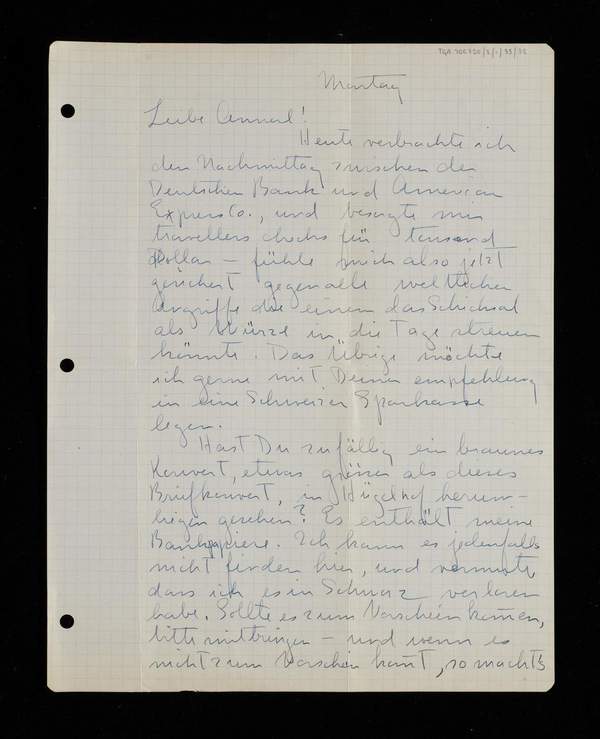 Montag
Liebe Annerl!
Heute verbrachte ich
den Nachmittag zwischen der
Deutschen Bank und American
Express Co., und besorgte mir
travellers checks für tausend
Dollar – fühle mich also jetzt
gesichert gegen alle weltlichen
Angriffe die einem das Schicksal
als Würze in die Tage streuen
könnte. Das Übrige möchte
ich gerne mit Deiner Empfehlung
in eine Schweizer Sparkasse
legen.
Hast Du zufällig ein braunes
Kouvert, etwas grösser als dieses
Briefkouvert, in Hügelhof herum-
liegen gesehen? Es enthält meine
Bankpapiere. Ich kann es jedenfalls
nicht finden hier, und vermute
dass ich es in Schwaz verloren
habe. Sollte es zum Vorschein kom̅en,
bitte mitbringen – und wenn es
nicht zum Vorschein kom̅t, so macht's